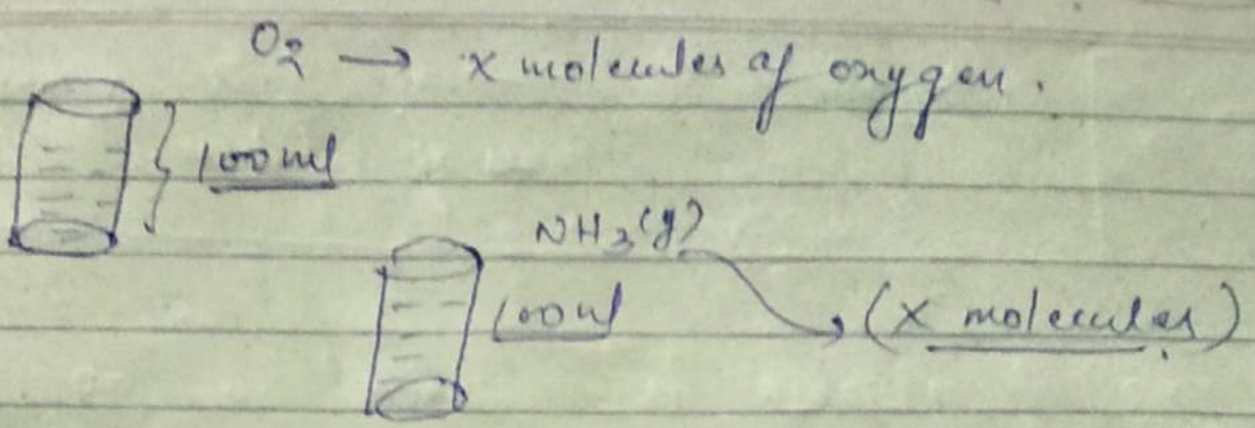 O2 → x molecules of oxygen.
100 ml
NH3(g)
100 ml
(x molecules)